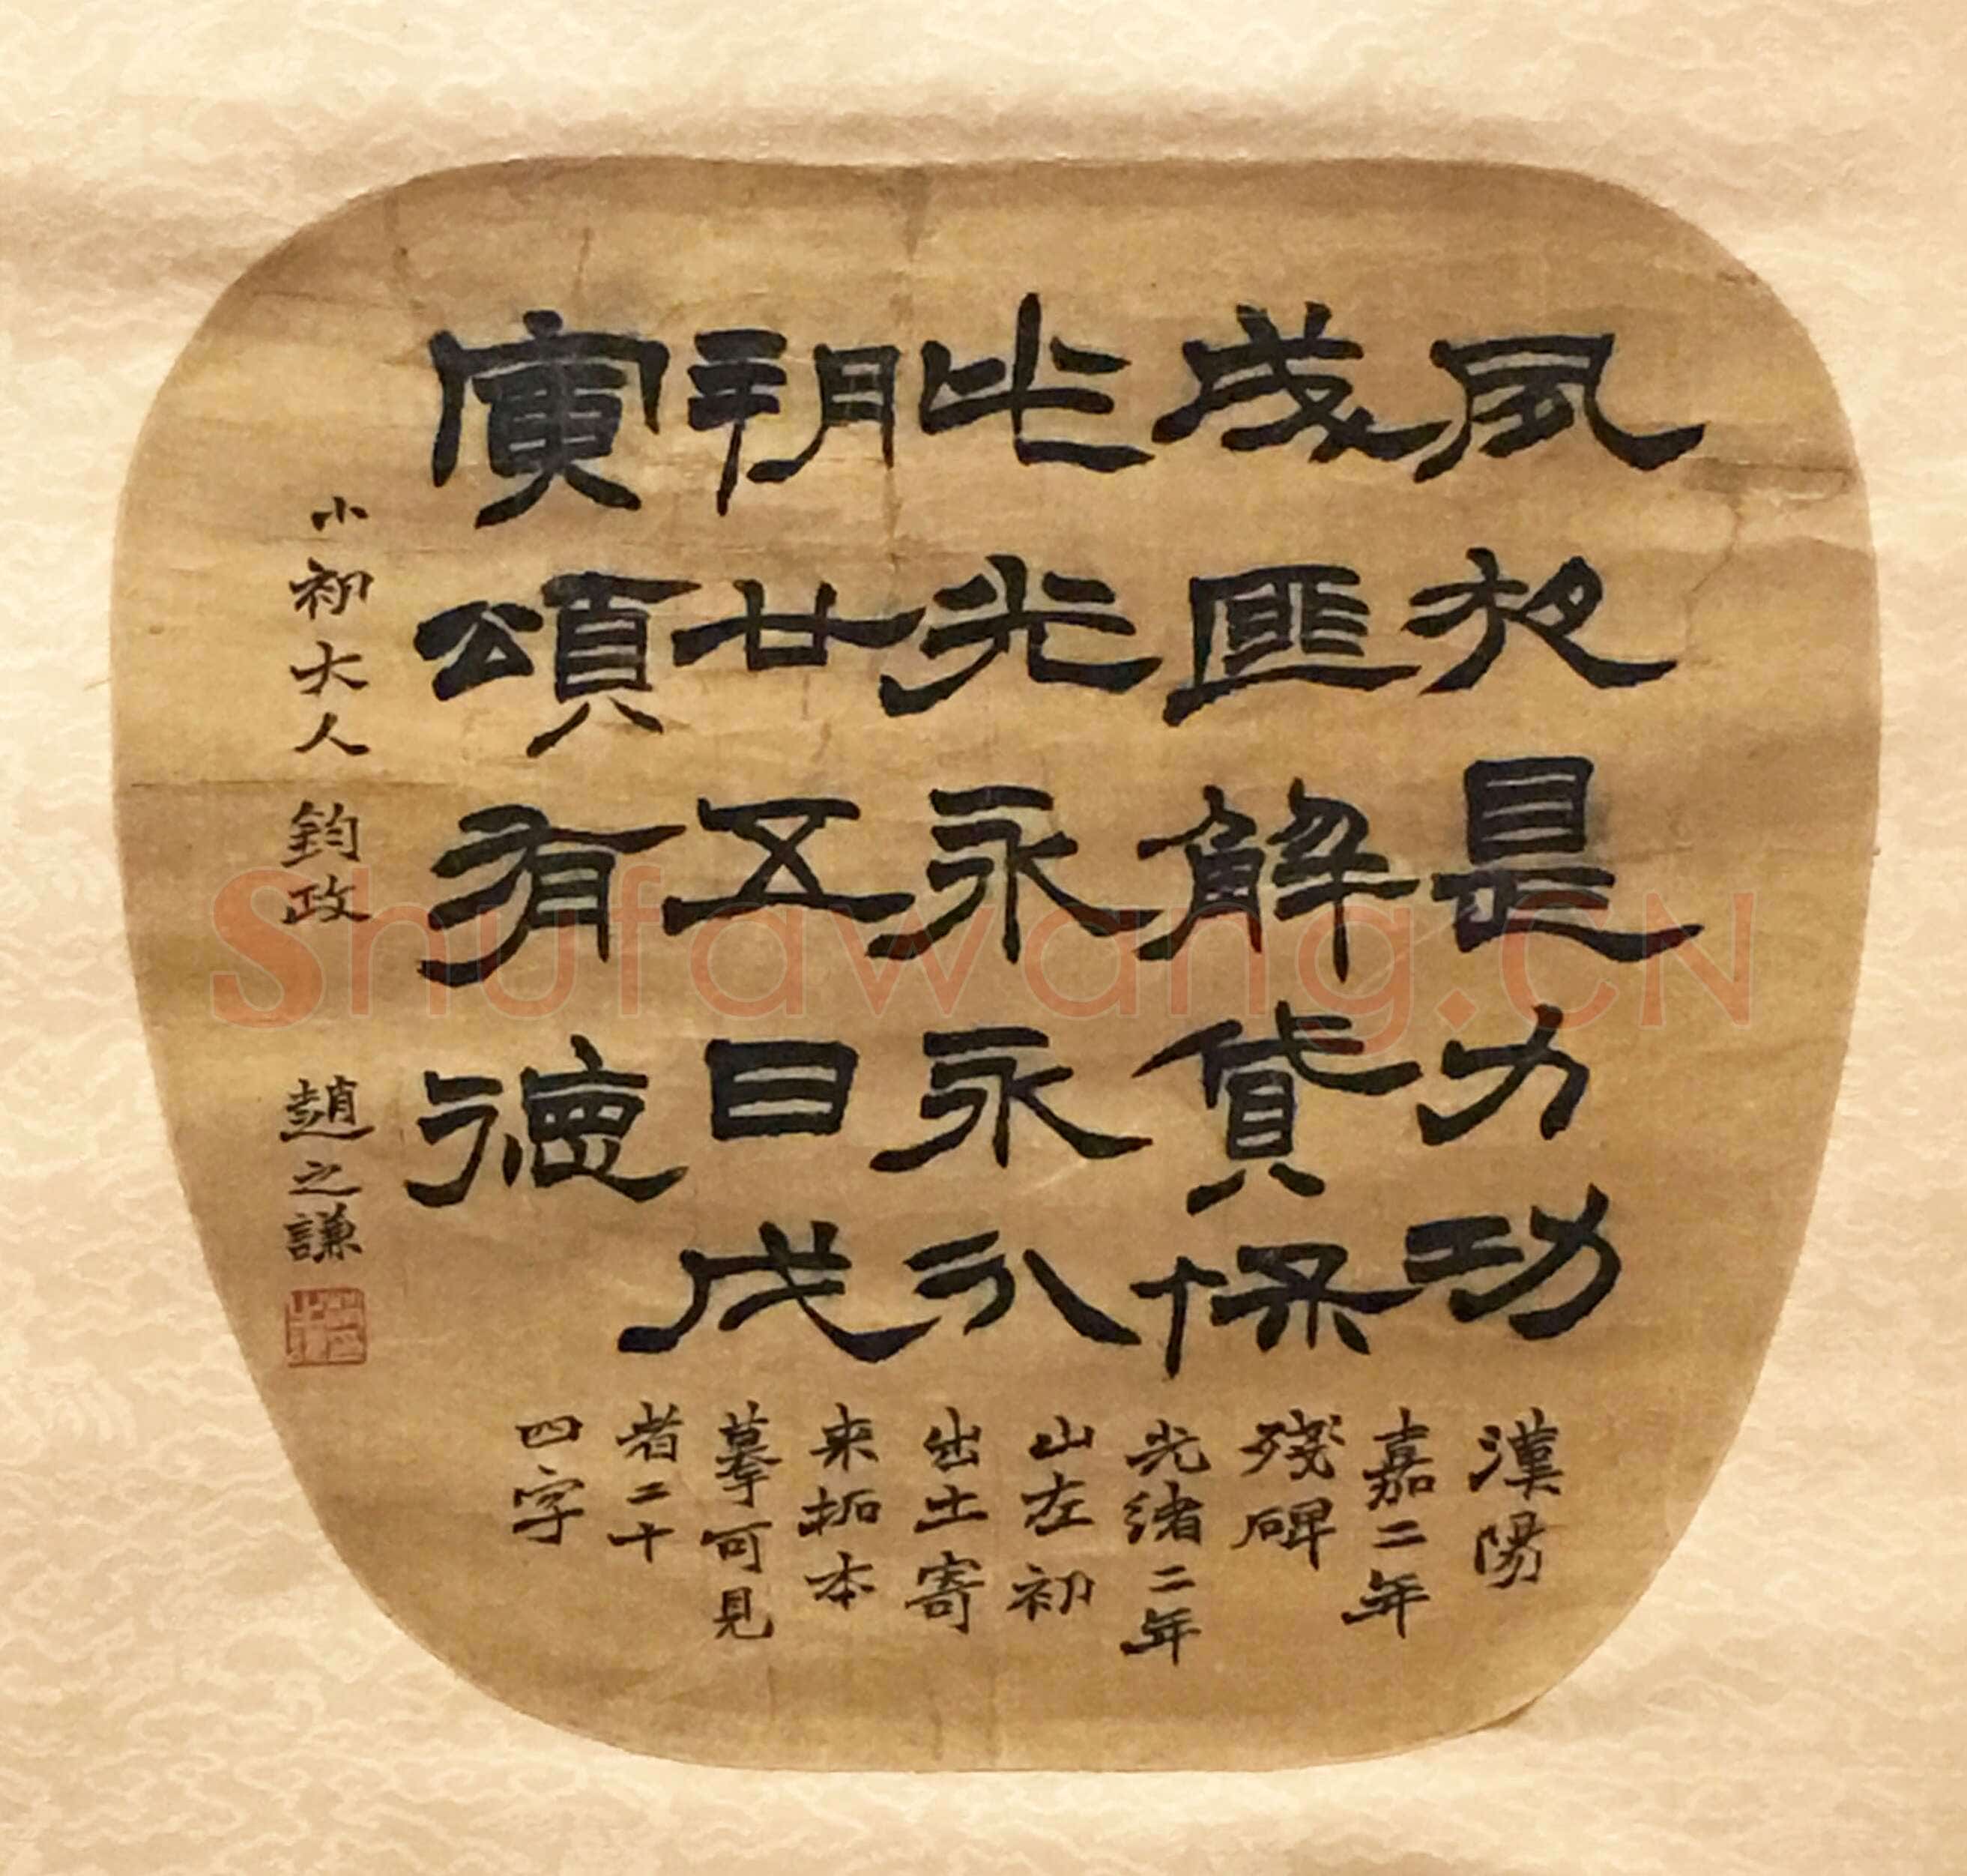 夙夜是力功
匪解貸保
光永永
朔廿五日戊
寅頌有德
漢陽
嘉二年
殘碑
光緒二年
山左初
出土寄
來拓本
摹可見
者二十
四字
小初大人鈞政 趙之謙
Shufawang.CN